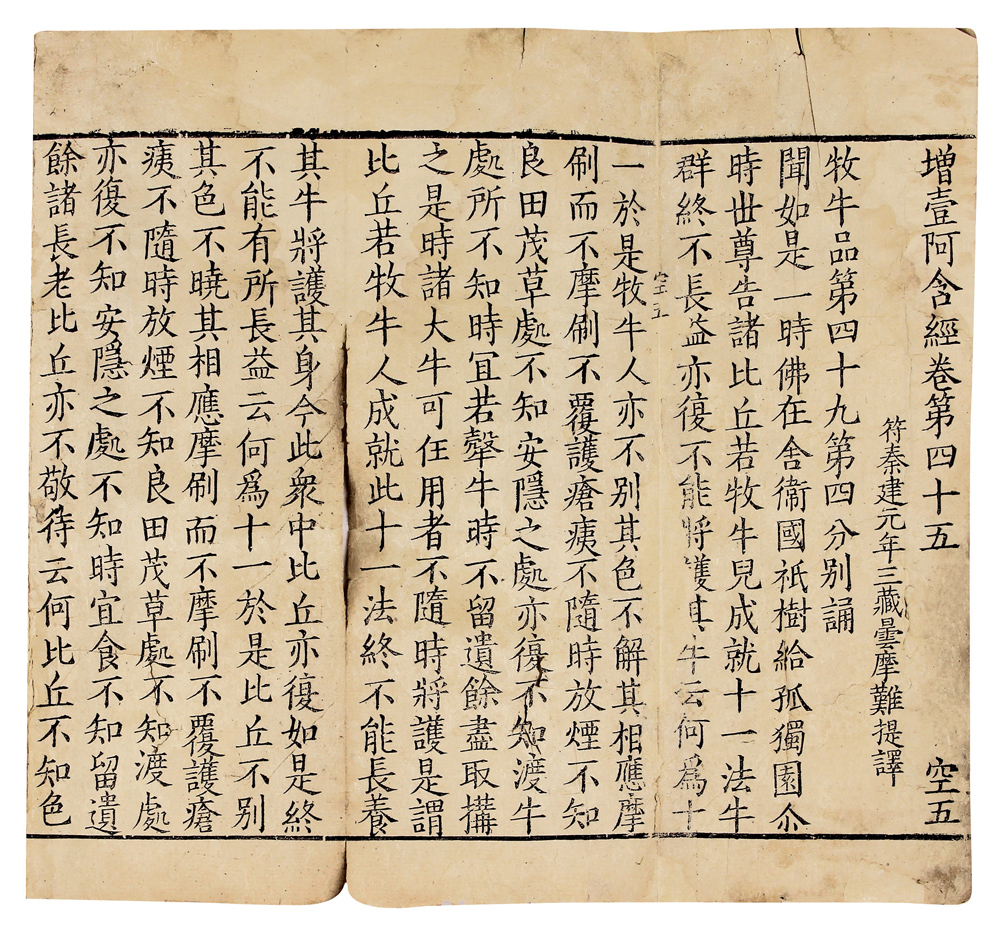 增壹阿含經卷第四十五　空五
符秦建元年三藏曇摩難提譯
牧牛品第四十九第四分別誦
聞如是一時佛在舍衞國祇樹給孤獨園尒
時世尊告諸比丘若牧牛兒成就十一法牛
群終不長益亦復不能將護其牛云何爲十
空五
一於是牧牛人亦不別其色不解其相應摩
刷而不摩刷不覆護瘡痍不隨時放煙不知
良田茂草處不知安隱之處亦復不知渡牛
處所不知時宜若𤛗牛時不留遺餘盡取搆
之是時諸大牛可任用者不隨時將護是謂
比丘若牧牛人成就此十一法終不能長養
其牛將護其身今此衆中比丘亦復如是終
不能有所長益云何爲十一於是比丘不別
其色不曉其相應摩刷而不摩刷不覆護瘡
痍不隨時放煙不知良田茂草處不知渡處
亦復不知安隱之處不知時宜食不知留遺
餘諸長老比丘亦不敬待云何比丘不知色